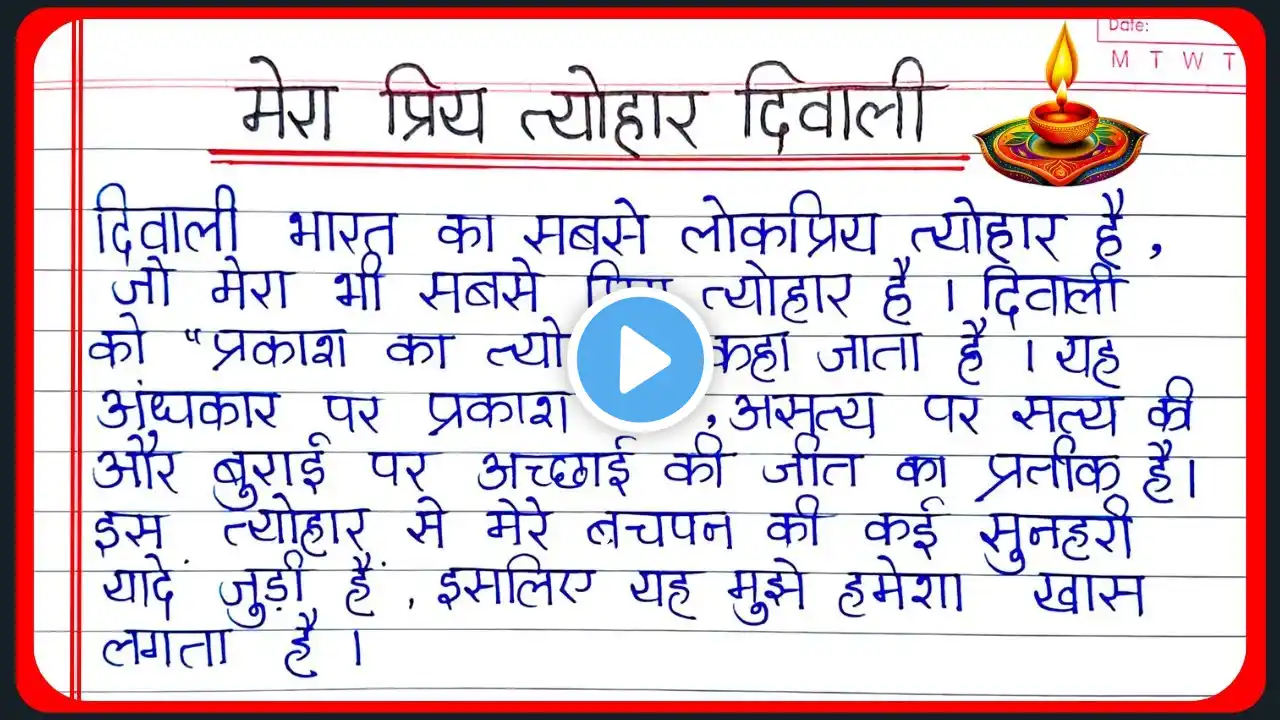 Date:
M T W T
मेरा प्रिय त्योहार दिवाली
दिवाली भारत का सबसे लोकप्रिय त्योहार है,
जो मेरा भी सबसे त्योहार है । दिवाली
को "प्रकाश का कहा जाता है । यह
अंधकार पर प्रकाश , असत्य पर सत्य की
और बुराई पर अच्छाई की जीत का प्रतीक है।
इस त्योहार से मेरे बचपन की कई सुनहरी
यादें जुड़ी हैं , इसलिए यह मुझे हमेशा खास
लगता है ।